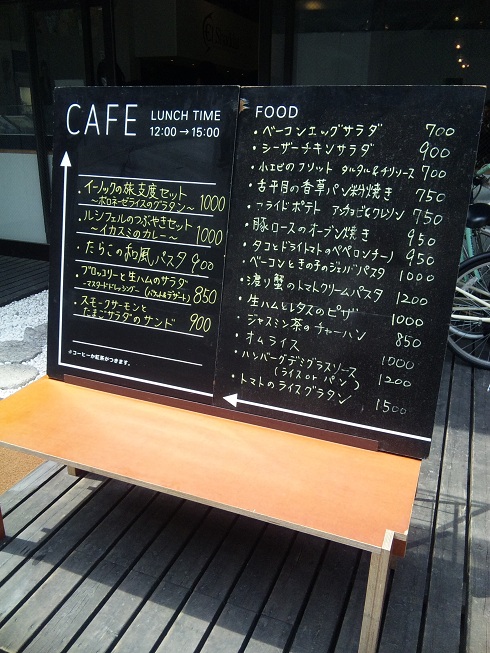 CAFE LUNCH TIME
12:00→15:00
・イーノックの旅支度セット
～ボロネーゼライスのグラタン～ 1000
・ルシフェルのつぶやきセット
～イカスミのカレー～ 1000
・たらこの和風パスタ 900
・ブロッコリーと生ハムのサラダ
-マスタードドレッシング- (バケット&デザート) 850
・スモークサーモンと
たまごサラダのサンド 900
※コーヒーか紅茶がつきます。
FOOD
・ベーコンエッグサラダ 700
・シーザーチキンサラダ 900
・小エビのフリット タルタル&チリソース 700
・舌平目の香草パン粉焼き 750
・フライドポテト アンチョビ&クレソン 750
・豚ロースのオーブン焼き 950
・タコとドライトマトのペペロンチーノ 950
・ベーコンときの子のジェノバパスタ 1000
・渡り蟹のトマトクリームパスタ 1200
・生ハムとレタスのピザ 1000
・ジャスミン茶のチャーハン 850
・オムライス 1000
・ハンバーグデミグラスソース
(ライス or パン) 1200
・トマトのライスグラタン 1500